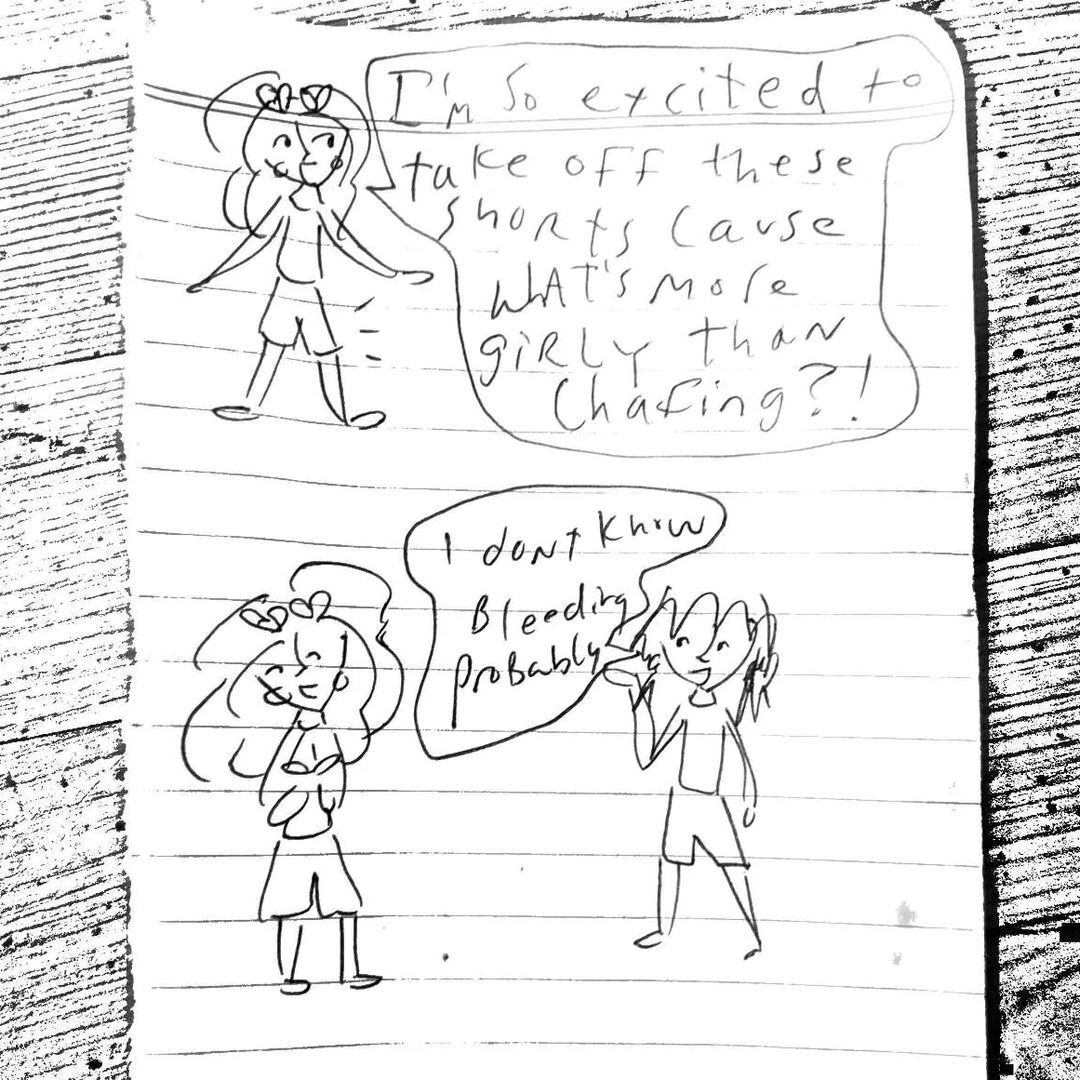 I'm So excited to
take off these
shorts Cause
WhAT's More
giRLy than
Chafing?!
I donT Know
Bleeding
ProBaBly